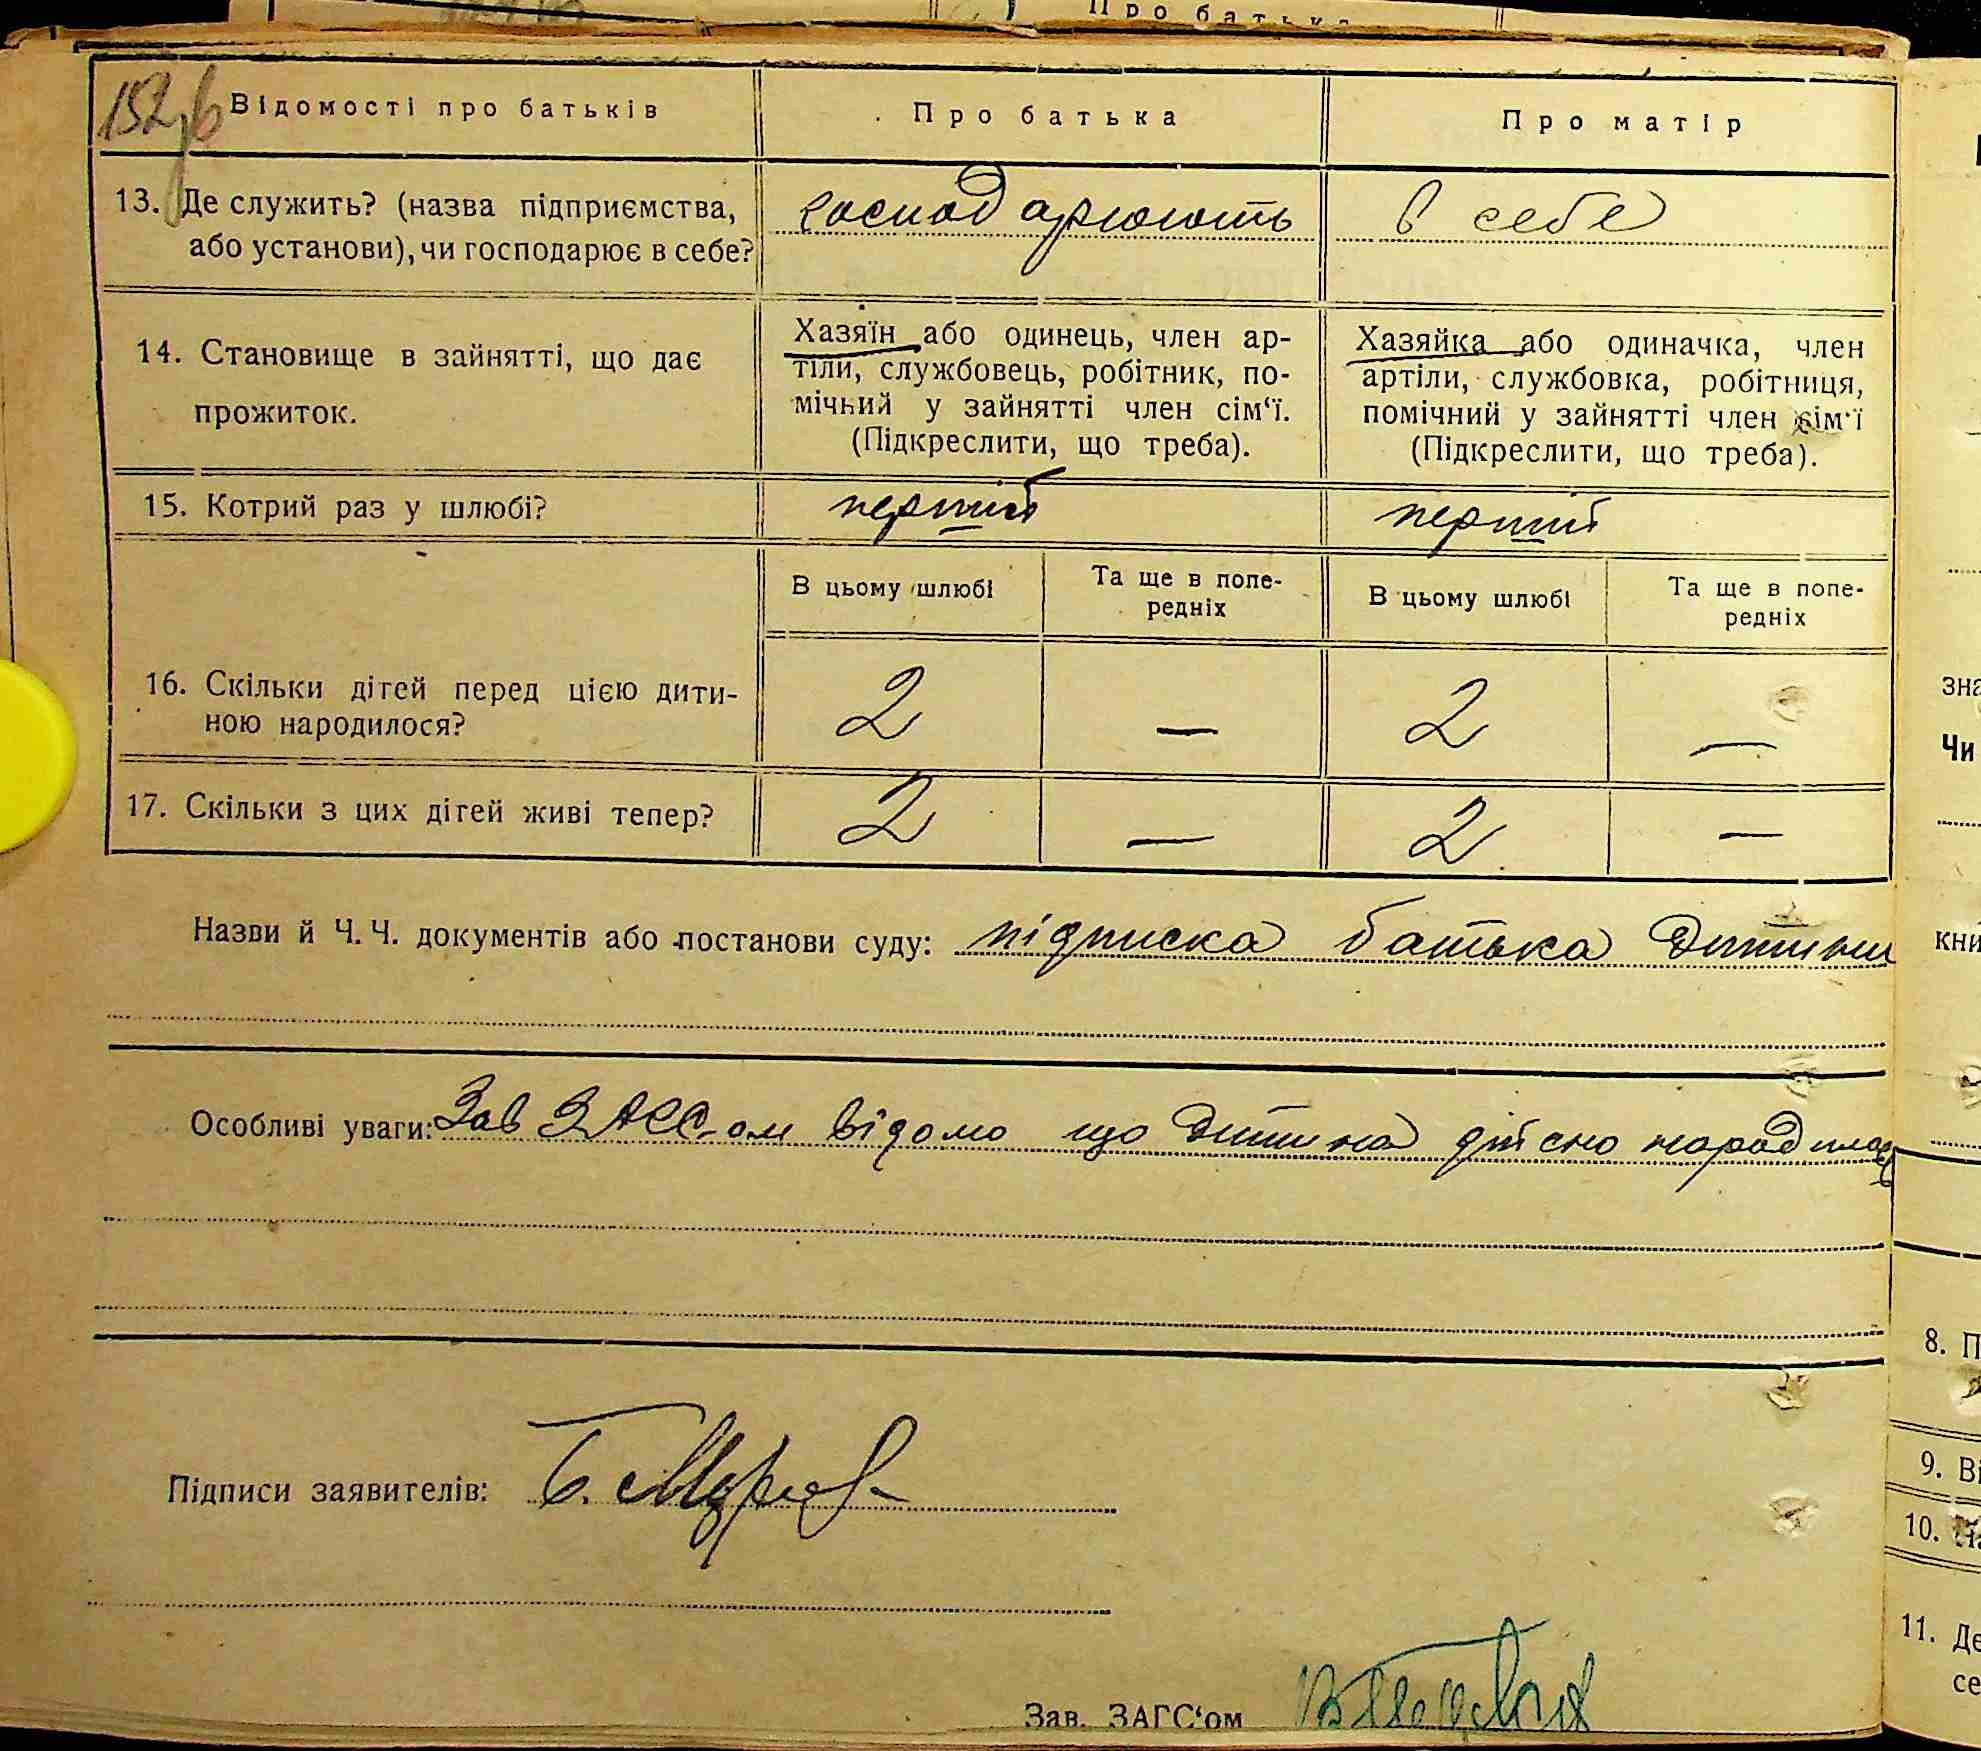 Про батька
152
Відомості про батьків
Про батька
Про матір
13. Де служить? (назва підприємства,
або установи), чи господарює в себе?
господарюють
в себе
14. Становище в зайнятті, що дає
прожиток.
Хазяїн або одинець, член ар-
тіли, службовець, робітник, по-
мічний у зайнятті член сім‘ї.
(Підкреслити, що треба).
Хазяйка або одиначка, член
артіли, службовка, робітниця,
помічний у зайнятті член сім‘ї
(Підкреслити, що треба).
15. Котрий раз у шлюбі?
перший
перший
В цьому шлюбі
Та ще в попе-
редніх
В цьому шлюбі
Та ще в попе-
редніх
16. Скільки дітей перед цією дити-
ною народилося?
2 — 2 —
17. Скільки з цих дітей живі тепер?
2 — 2 —
Назви й Ч. Ч. документів або постанови суду: підписка батька дитини
Особливі уваги: Зав ЗАГС-ом відомо що дитина дійсно народилась
Підписи заявителів:
Зав. ЗАГС‘ом
зна
Чи
кни
8. П
9. Ві
10.
11. Де
се